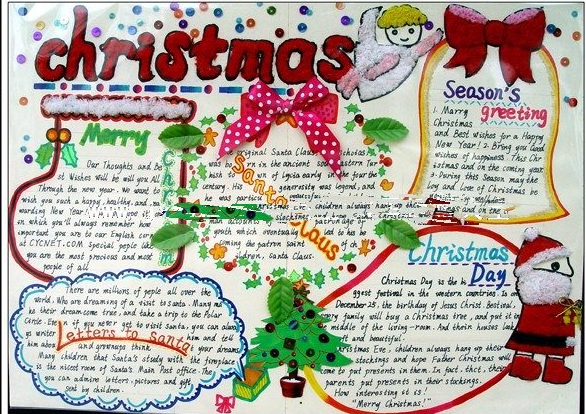 christmas
Merry
Our Thoughts and Be
st Wishes will be will you All
Through the new year. We want to
wish you such a happy, healthy, and re
warding New Year
in which you'll always remember how
important you are to our English cor
at CYCNET.COM Special people like
you are the most precious and most
people of all
Santa Claus
original Santa Claus
was born in the ancient south eastern Tur
kish town of Lycia early in the fourth
century. His generosity was legend, and
he was partic
children always hang up their
stockings and
man accounts patronage of
youth which eventually led to his be
coming the patron saint of ch
ildren, santa claus.
Season's
greeting
1. Marry
Christmas
and Best wishes for a Happy
New Year! 2. Bring you Good
wishes of happiness This Chr
istmas and on the coming year
During this Season may the
joy and Love of Christmas be
Christmas
Day
Christmas Day is the b
ggest festival in the western countries. Is on
December 25, the birthday of Jesus Christ. Bestival,
every family will buy a Christmas tree, and put it in
middle of the living-room. And their houses look
beautiful.
Christmas Eve, children always hang up their
stockings and hope Father Christmas will
come to put presents in them. In fact, their
parents put presents in their stockings.
How interesting it is!
"Merry Christmas!"
There are millions of people all over the
world. Who are dreaming of a visit to Santa. Many ma
ke their dream come true, and take a trip to the Polar
Circle. Even if you never get to visit Santa, you can always
write him and tell
him about and grownups think your dreams.
Letters to santa
Many children that Santa's study with the fireplace
is the nicest room of Santa's Main Post Office. There
you can admire letters, pictures and gift
sent by children.